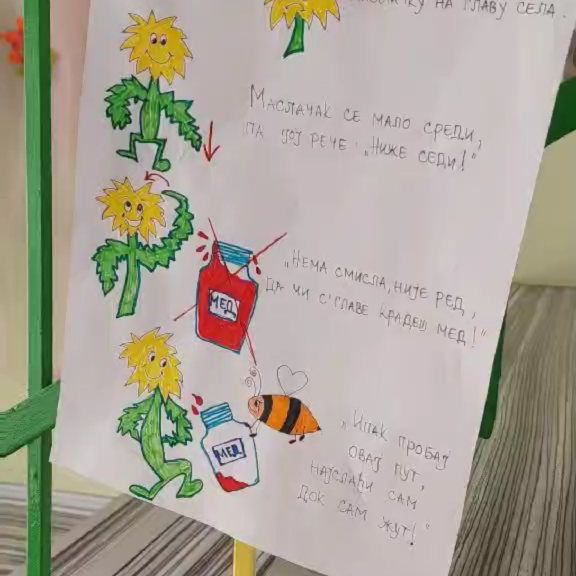 НА ГЛАВУ СЕЛА.
МАСЛАЧАК СЕ МАЛО СРЕДИ,
ПА ЈОЈ РЕЧЕ: „НИЖЕ СЕДИ!"
„НЕМА СМИСЛА, НИЈЕ РЕД,
ДА МИ С'ГЛАВЕ КРАДЕШ МЕД!"
МЕД
„ИПАК ПРОБАЈ
ОВАЈ ПУТ,
НАЈСЛАЂИ САМ
ДОК САМ ЖУТ!"
МЕД